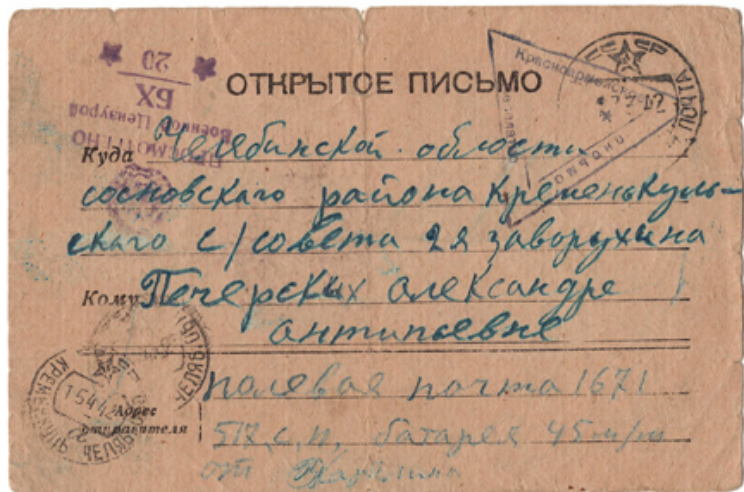 20
БХ
ПРОСМОТРЕНО
Военной Цензурой
ОТКРЫТОЕ ПИСЬМО
Красноармейское
письмо
СССР
ПОЧТА
Куда Челебинской области
сосновскаго района Кременькуль-
скаго с/совета 2я заварухина
Кому Печерских Александре
антипьевне
Адрес
отправителя
полевая почта 1671
517, с, п, батарея 45 м/м
от